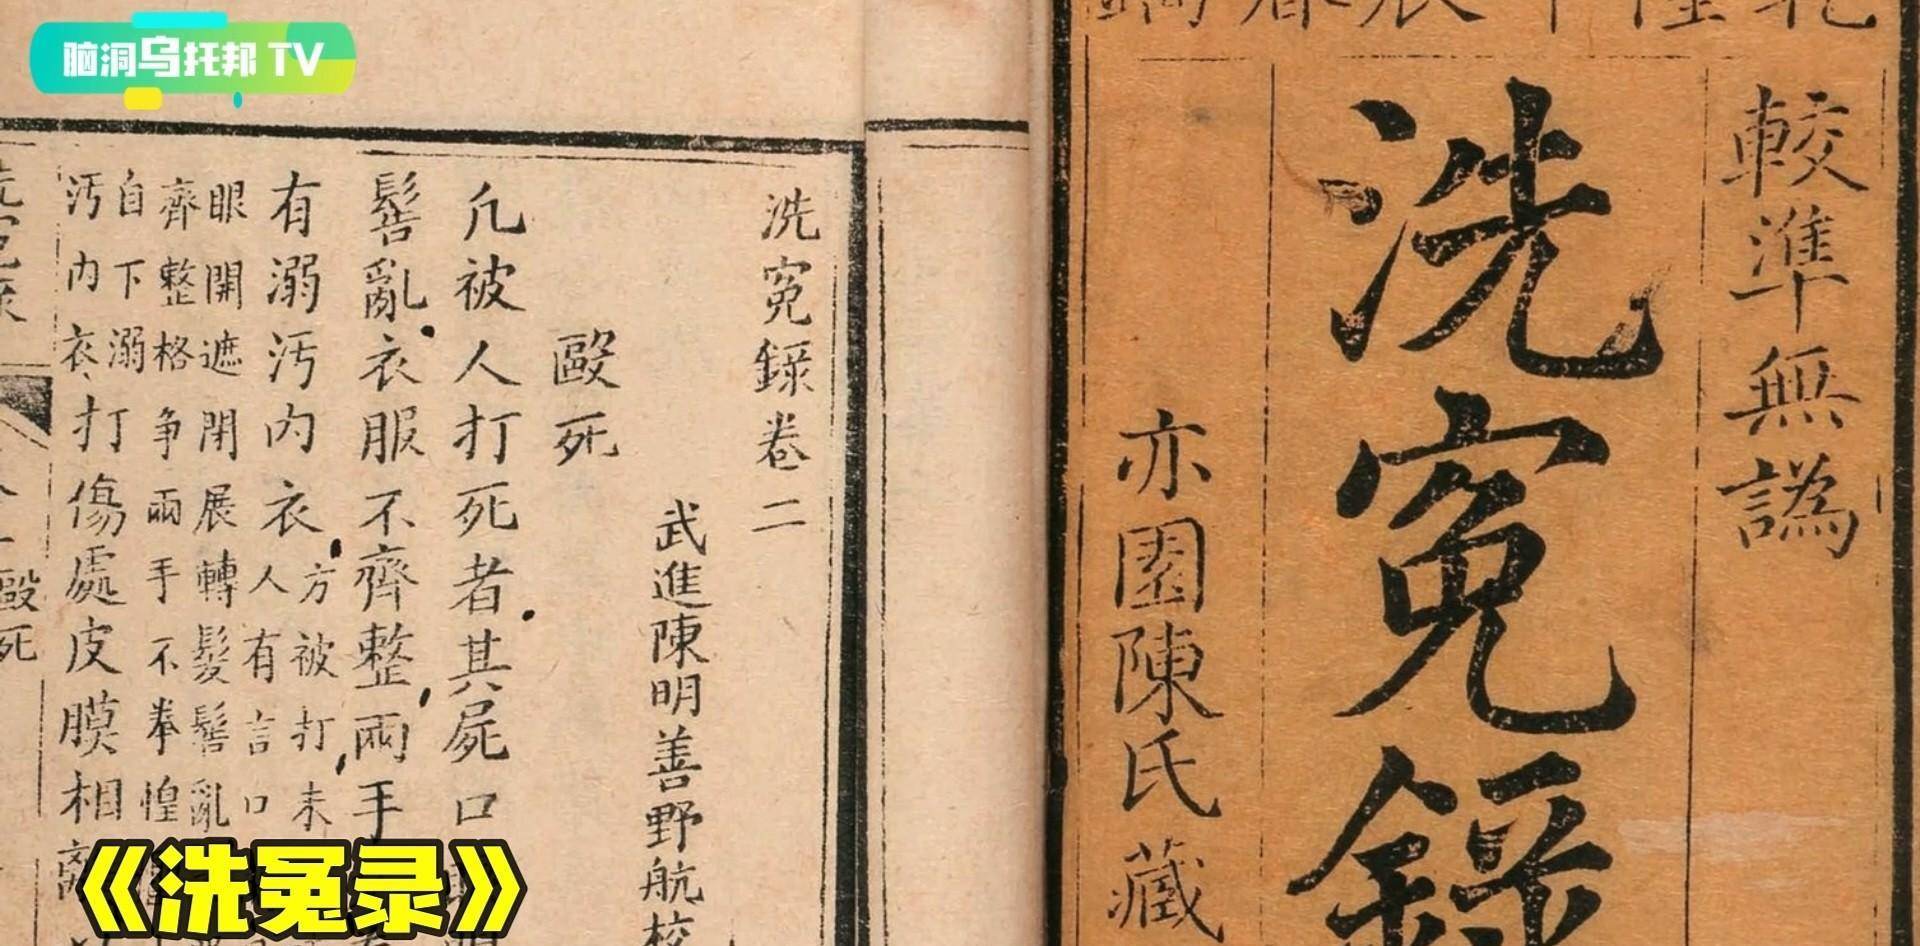 脑洞乌托邦 TV
較準無譌
洗冤錄
亦園陳氏藏
洗冤錄卷二
武進陳明善野航校
毆死
凡被人打死者其屍口
髻亂衣服不齊整兩手
有溺汚內衣方被打未
人有言口
眼開遮閉展轉髮髻亂
齊整格争兩手不拳惶
自下溺
汚內衣打傷處皮膜相離
毆死
《洗冤录》